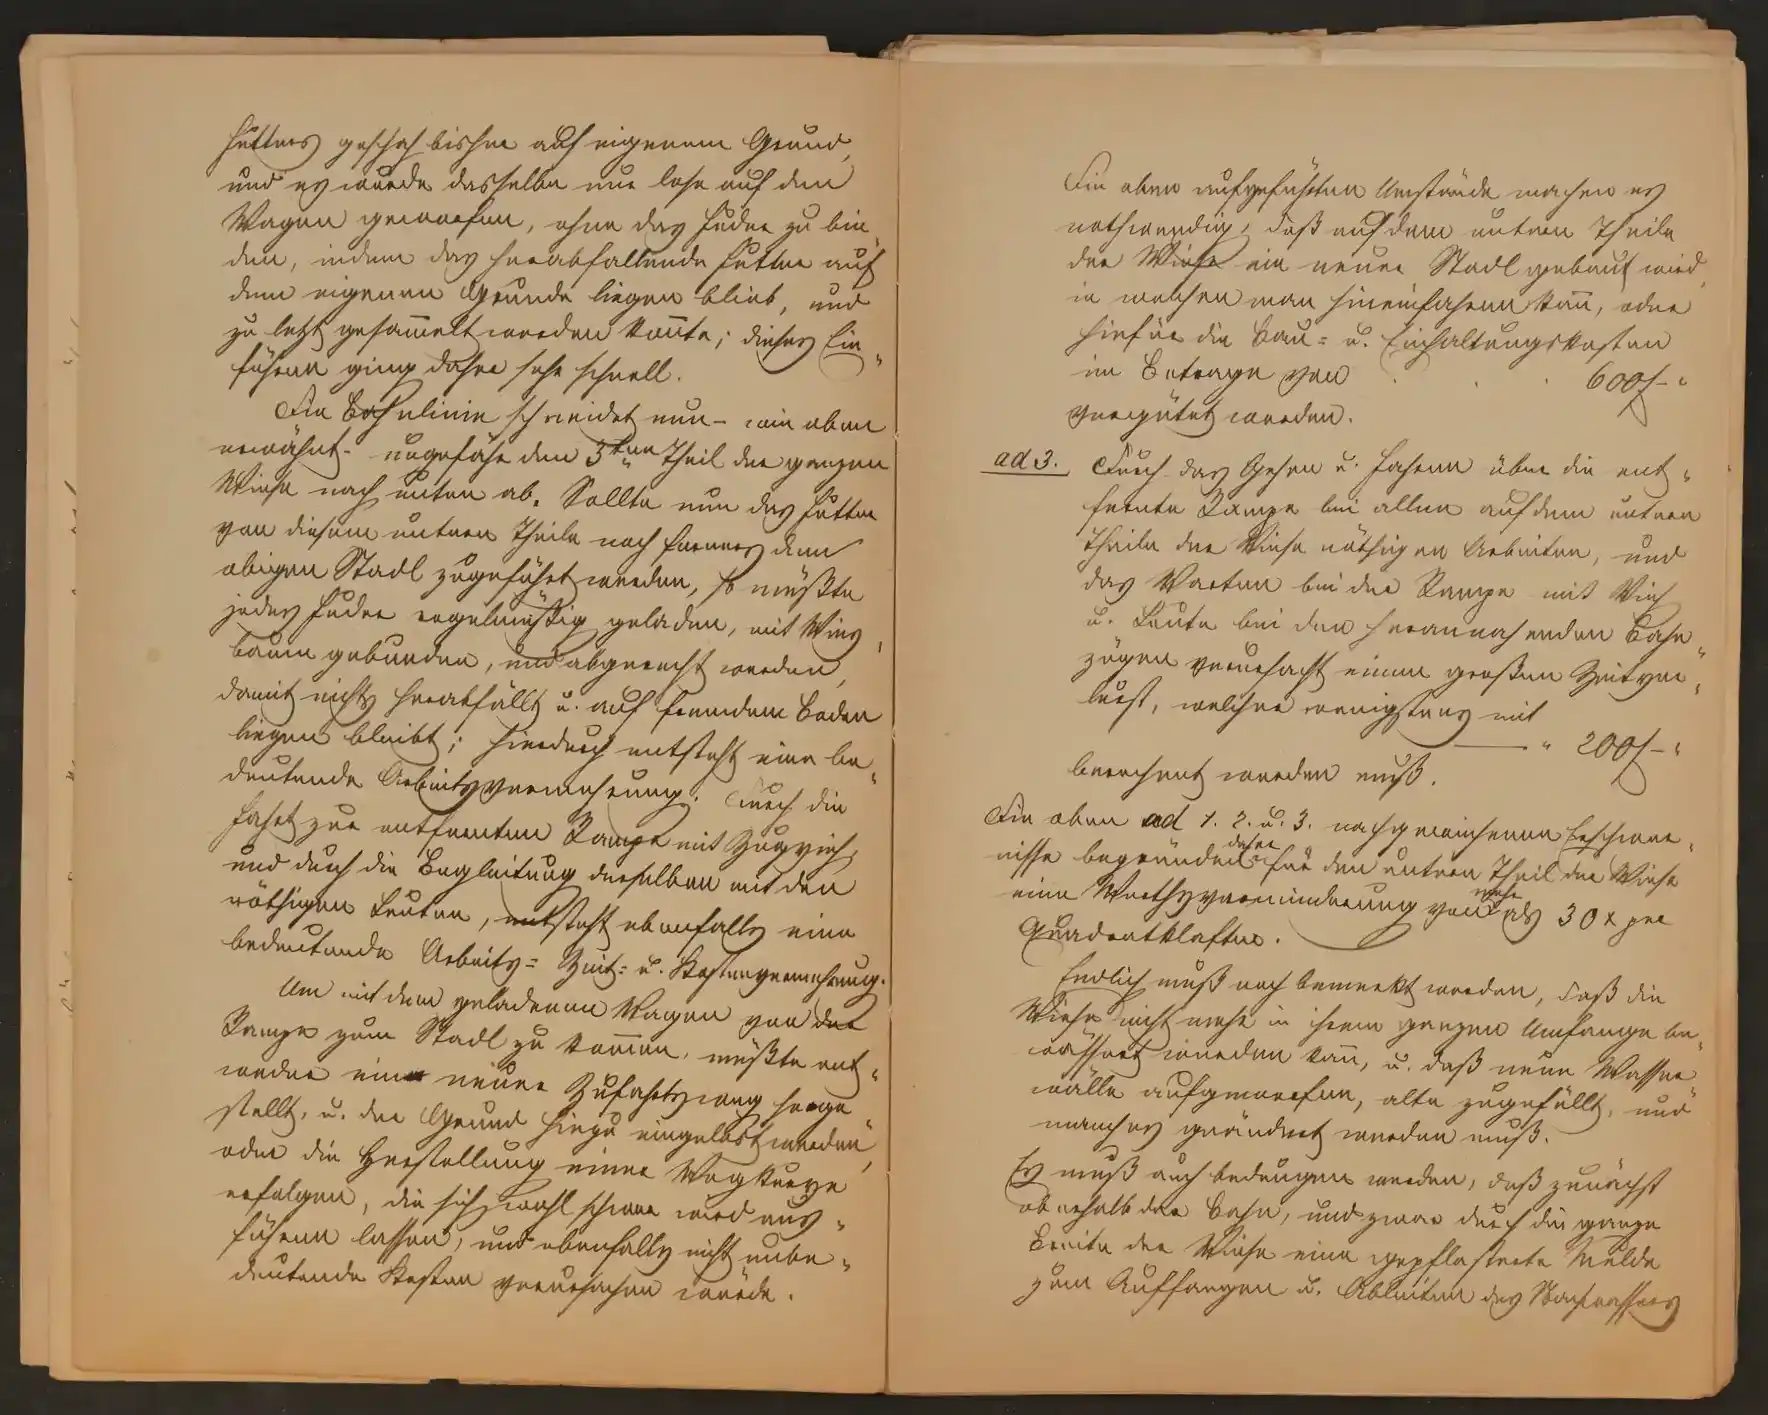 Futters geschah bisher auf eigenem Grund,
und es wurde dasselbe nur lose auf den
Wagen geworfen, ohne das Fuder zu bin„
den, indem das herabfallende Futter auf
dem eigenen Grunde liegen blieb, und
zu letzt gesam̅elt werden kon̅te; dieses Ein„
führen ging daher sehr schnell.
Die Bahnlinie schneidet nun – wie oben
erwähnt – ungefähr den 3ten Theil der ganzen
Wiese nach unten ab. Sollte nun das Futter
von diesem untern Theile nach Heuers dem
obigen Stadl zugeführt werden, so müßte
jedes Fuder regelmäßig geladen, mit Wies„
baum gebunden, und abgerecht werden,
damit nichts herabfällt u. auf fremdem Boden
liegen bleibt; hierdurch entsteht eine be„
deutende Arbeitsvermehrung. Durch die
Fahrt zur entfernten Rampe mit Zugvieh,
und durch die Begleitung desselben mit den
nöthigen Leuten, entsteht ebenfalls eine
bedeutende Arbeits= Zeit= u. Kostenvermehrung.
Um mit dem geladenen Wagen von der
Rampe zum Stadl zu kom̅en, müßte ent„
weder ein neuer Zufahrtsweg herge„
stellt, u. der Grund hiezu eingelöst werden,
oder die Herstellung einer Wegkurve
erfolgen, die sich wohl schwer wird aus„
führen lassen, und ebenfalls nicht unbe„
deutende Kosten verursachen würde.
Die oben aufgeführten Umstände machen es
nothwendig, daß auf dem untern Theile
der Wiese ein neuer Stadl gebaut wird,
in welchen man hineinfahren kan̅, oder
hiefür die Bau= u. Einhaltungskosten
im Betrage von . . . 600f – „
vergütet werden.
ad 3. Durch das Gehen u. Fahren über die ent„
fernte Rampe bei allen auf dem untern
Theile der Wiese nöthigen Arbeiten, und
das Warten bei der Rampe mit Vieh
u. Leute bei den herannahenden Bahn„
zügen verursacht einen großen Zeitver„
lust, welcher wenigstens mit
— „ 200f – „
berechnet werden muß.
Die oben ad 1. 2. u. 3. nachgewiesenen Erschwer„
nisse begründen daher für den untern Theil der Wiese
eine Werthsverminderung von mehr als 30 x per
Quadratklafter.
Endlich muß noch bemerkt werden, daß die
Wiese nicht mehr in ihrem ganzen Umfange be„
wässert werden kan̅, u. daß neue Wasser„
wälle aufgeworfen, alte zugefüllt, und
manches geändert werden muß.
Es muß auch bedungen werden, daß zunächst
oberhalb der Bahn, und zwar durch die ganze
Breite der Wiese eine gepflasterte Mulde
zum Auffangen u. Ableiten des